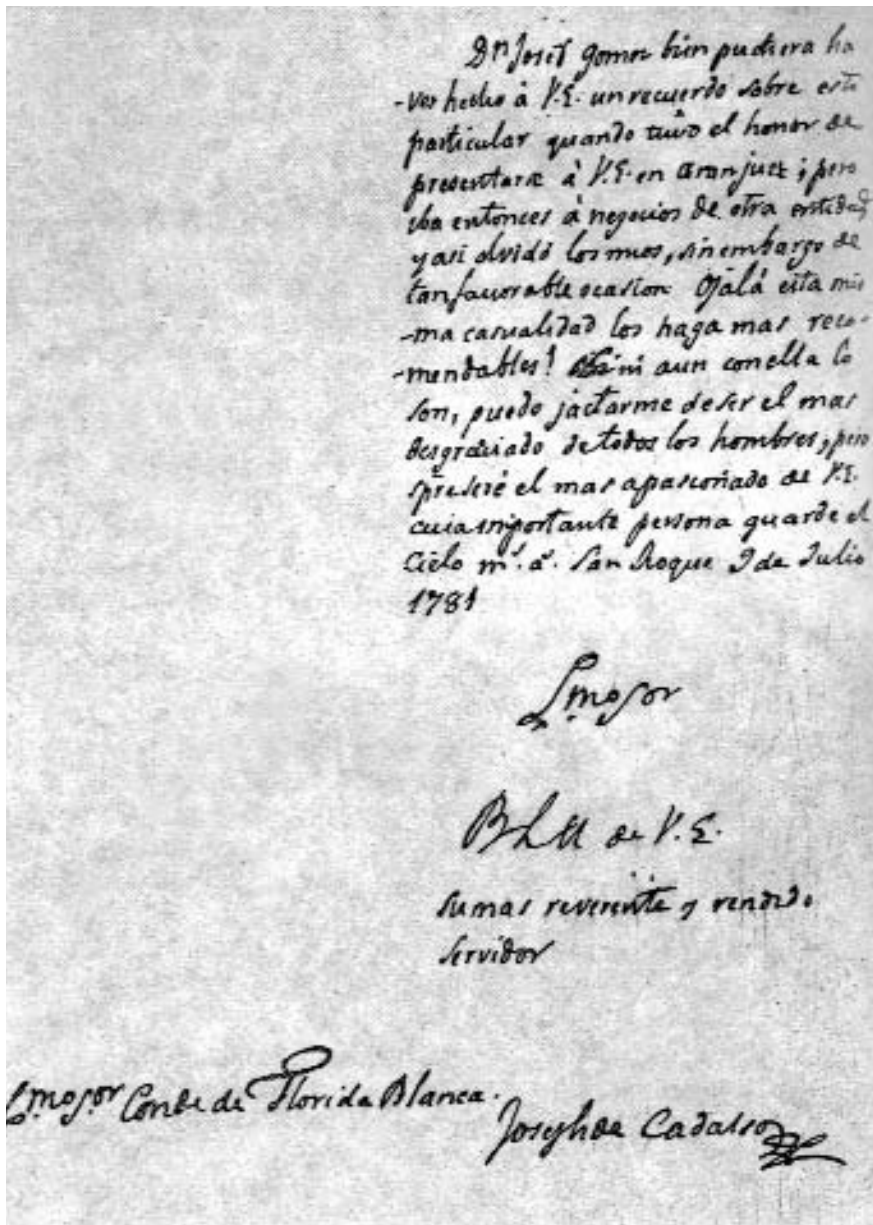 Dn Josef Gomez bien pudiera ha
-ver hecho à V.E. un recuerdo sobre este
particular quando tuvo el honor de
presentarse à V.E. en Aranjuez; pero
iba entonces à negocios de otra entidad
y asi olvidó los mios, sin embargo de
tan favorable ocasion Ojalá esta mis
-ma casualidad los haga mas reco-
-mendables! Si ni aun con ella lo
son, puedo jactarme de ser el mas
desgraciado de todos los hombres, pero
spre seré el mas apasionado de V.E.
cuia importante persona guarde el
Cielo ms. as. San Roque 9 de Julio
1781
Exmo Sor
BLM de V.E.
su mas reverente y rendido
servidor
Exmo Sor Conde de Florida Blanca.
Joseph de Cadalso